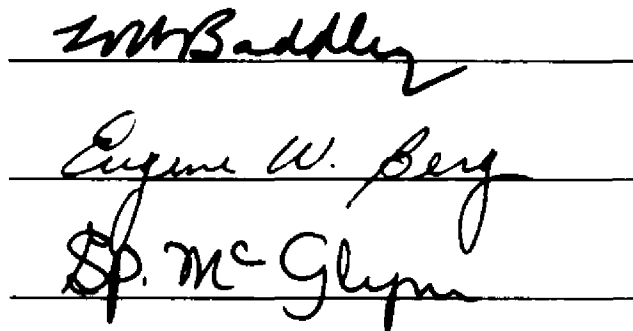 WH Baddley
Eugene W. Berg
S.P. McGlynn